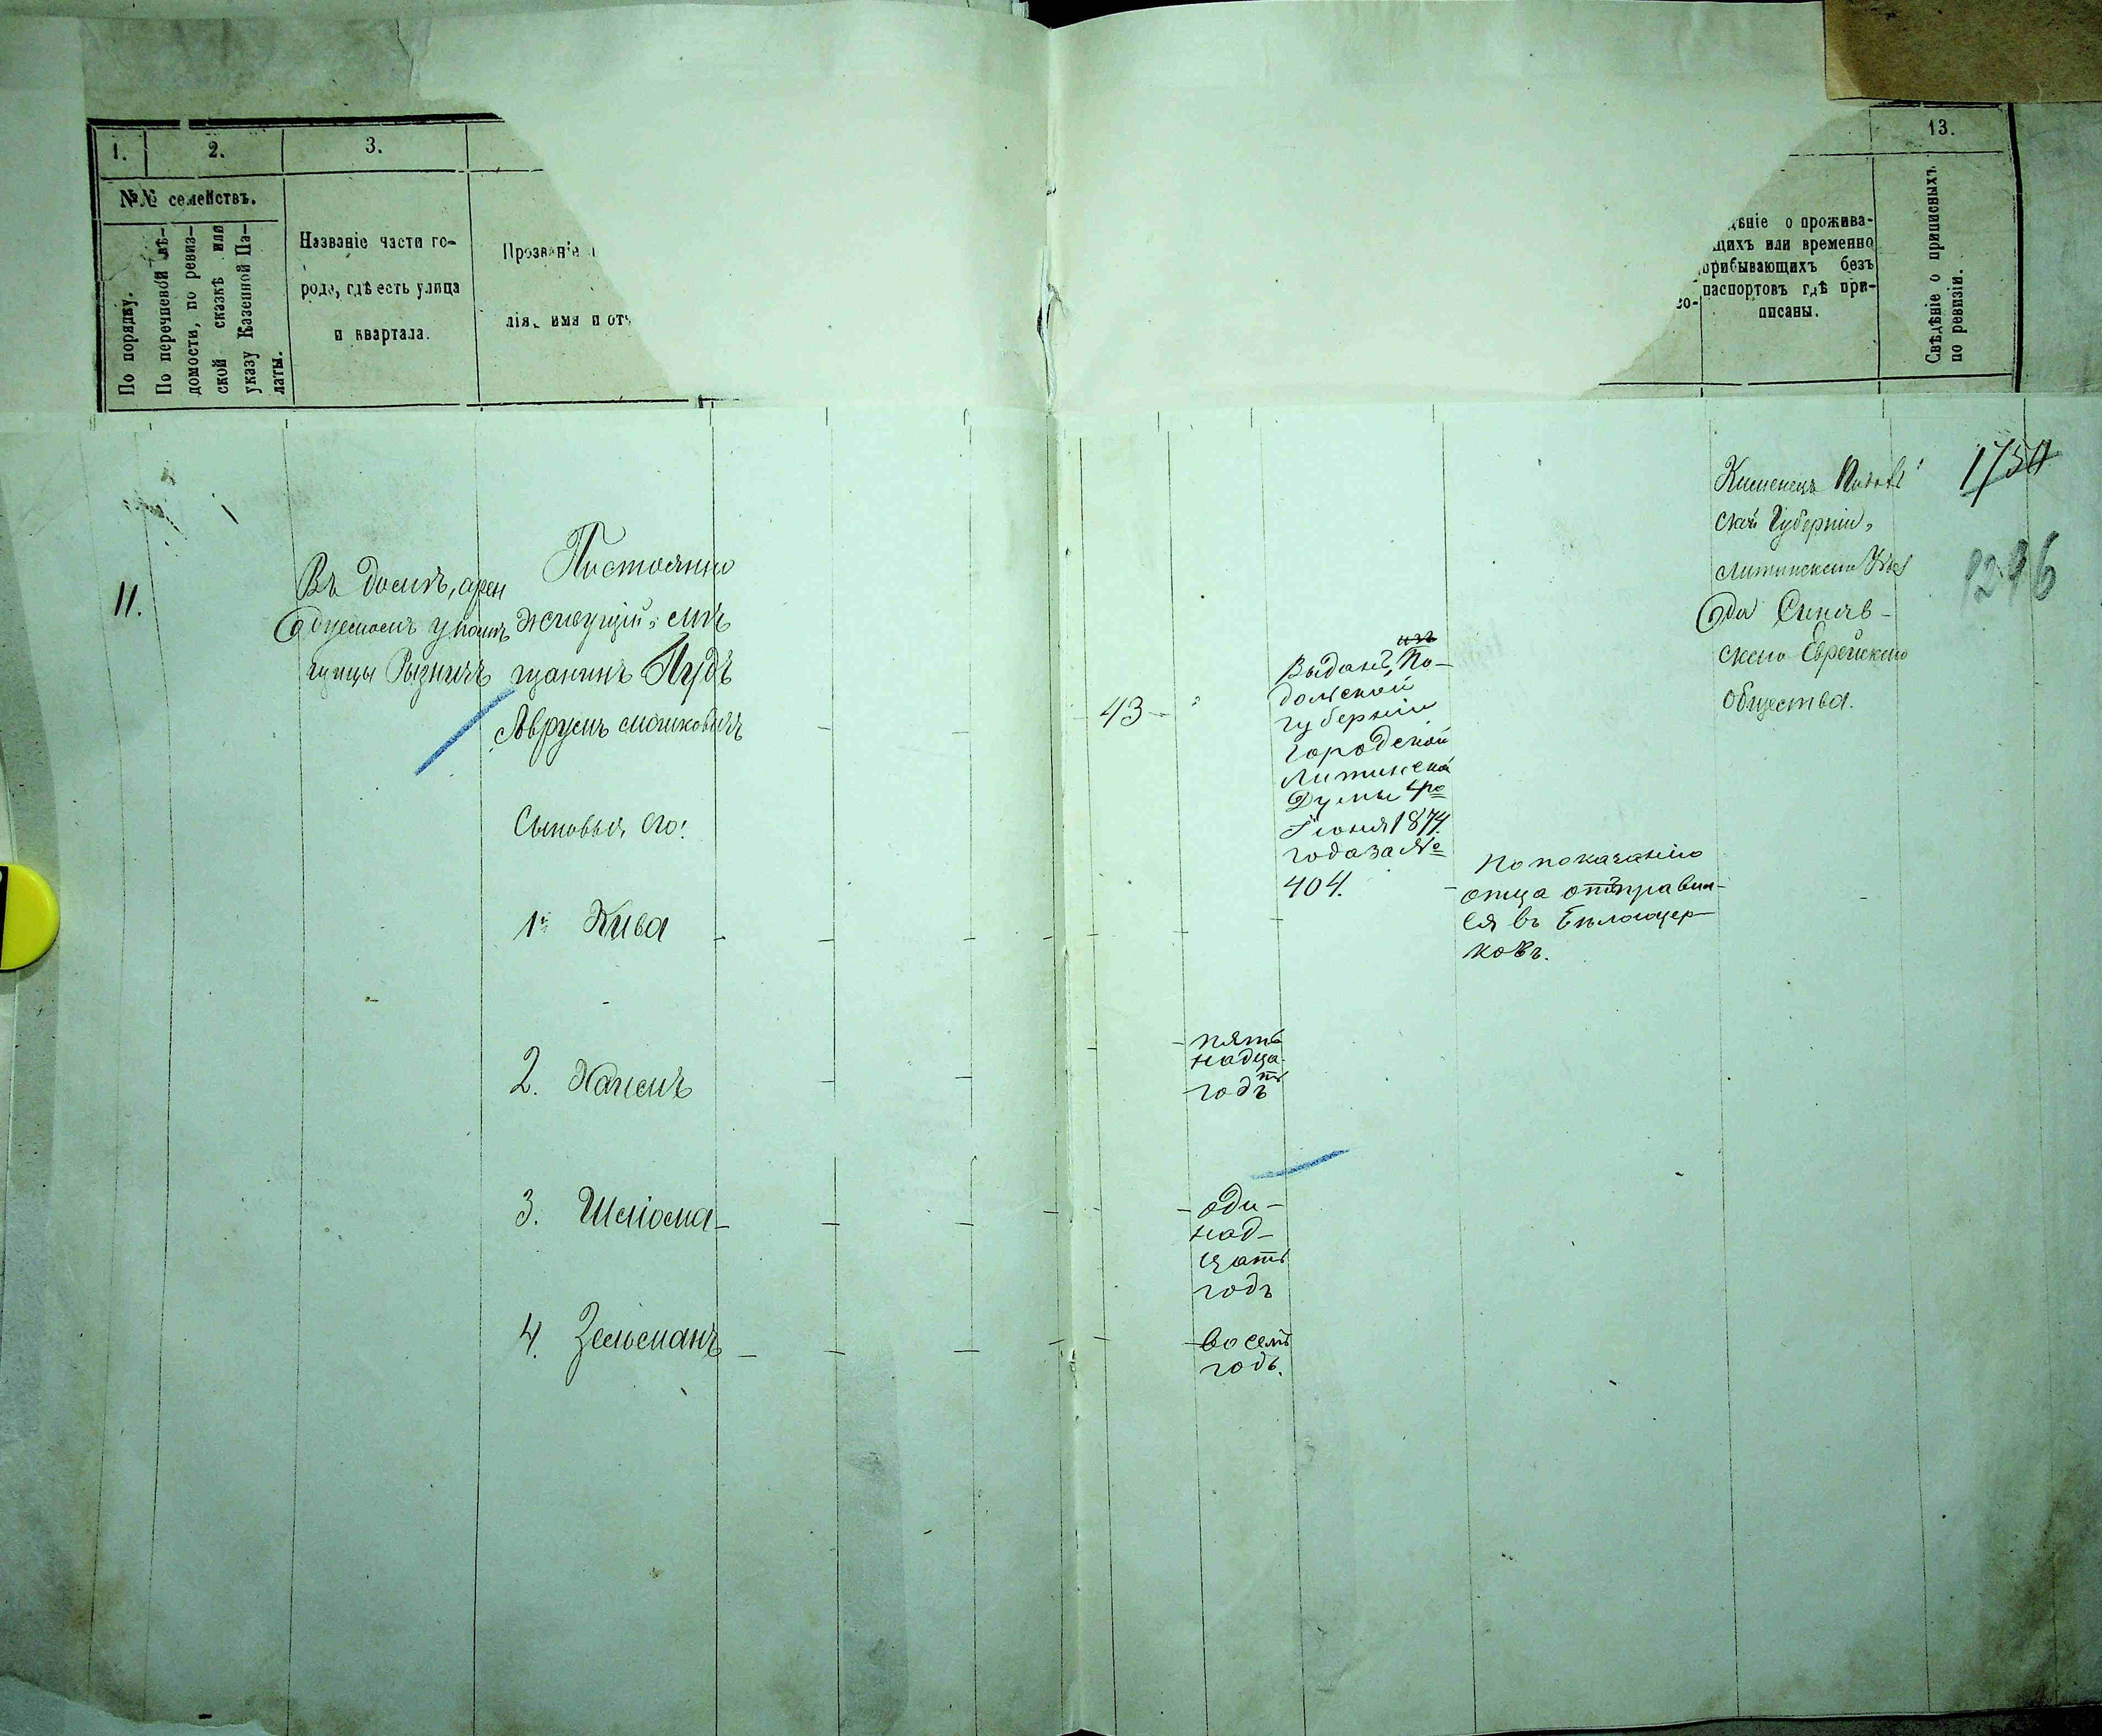 1.
2.
3.
13.
№№ семействъ.
По порядку.
По перечневой вѣ-
домости, по ревиз-
ской сказкѣ или
указу Казенной Па-
латы.
Названіе части го-
рода, гдѣ есть улица
и квартала.
Прозваніе
лія, имя и отч
дѣніе о прожива-
щихъ или временно
прибывающихъ безъ
паспортовъ гдѣ при-
писаны.
со-
Свѣдѣніе о приписныхъ
по ревизіи.
11.
Въ домѣ, арен
дуемомъ у помѣ
щицы
Постоянно
живущій, мѣ
щанинъ Пудъ
Аврумъ Мошковичъ
Сыновья его:
1й Кива
2. Хаимъ
3. Шліома
4. Зельманъ
43
пять
надца
ть
годъ
оди-
над-
цать
годъ
восемь
годъ.
изъ
Выданъ По-
дольской
губерніи
городской
Литинской
Думы 4го
Іюня 1874
года за №
404.
По показанію
отца отправил-
ся въ Бѣлоцер-
ковъ.
Каменецъ Подоль
ской Губерніи,
Литинскаго Уѣз
да Синяв-
скаго Еврейскаго
общества.
1246